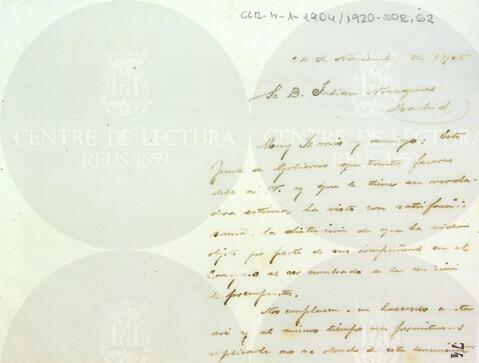 CLR-4-1-1904/1920-SOR, 62
24 de Noviembre de 1905
Sr. D. Julian Nougues
Madrid
CENTRE DE LECTURA
REUS 1859
CENTRE DE LECTURA
REUS 1859
Muy Sr mio y amigo: Esta
Junta de Gobierno que tantos favores
debe a V. y que le tiene en verda-
dera estima ha visto con satisfacción
suma, la distinción de que ha sido
objeto por parte de sus compañeros en el
Congreso al ser nombrado de la comisión
de presupuestos.
Nos complacemos en hacerlo
así y al mismo tiempo nos permitimos
suplicarle no se olvide de esta
74